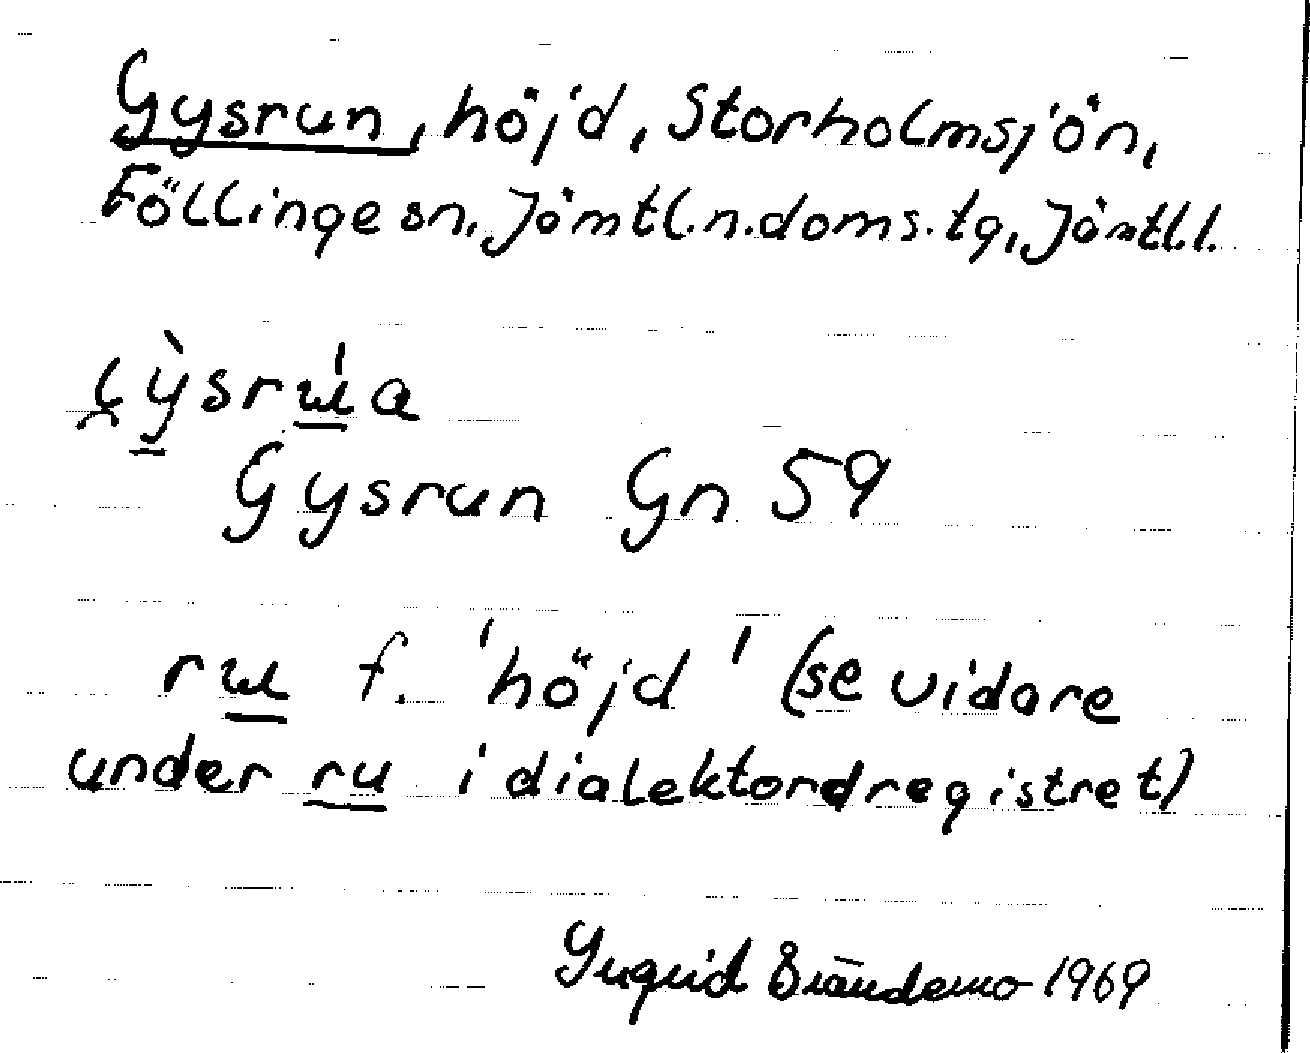 Gysrun, höjd, Storholmsjön,
Föllinge sn, Jämtl.n.doms.tg, Jämtl.l.
Gysrun Gn 59
rɯ f. 'höjd' (se vidare
under ru i dialektordregistret)
Ingrid Brändemo 1969